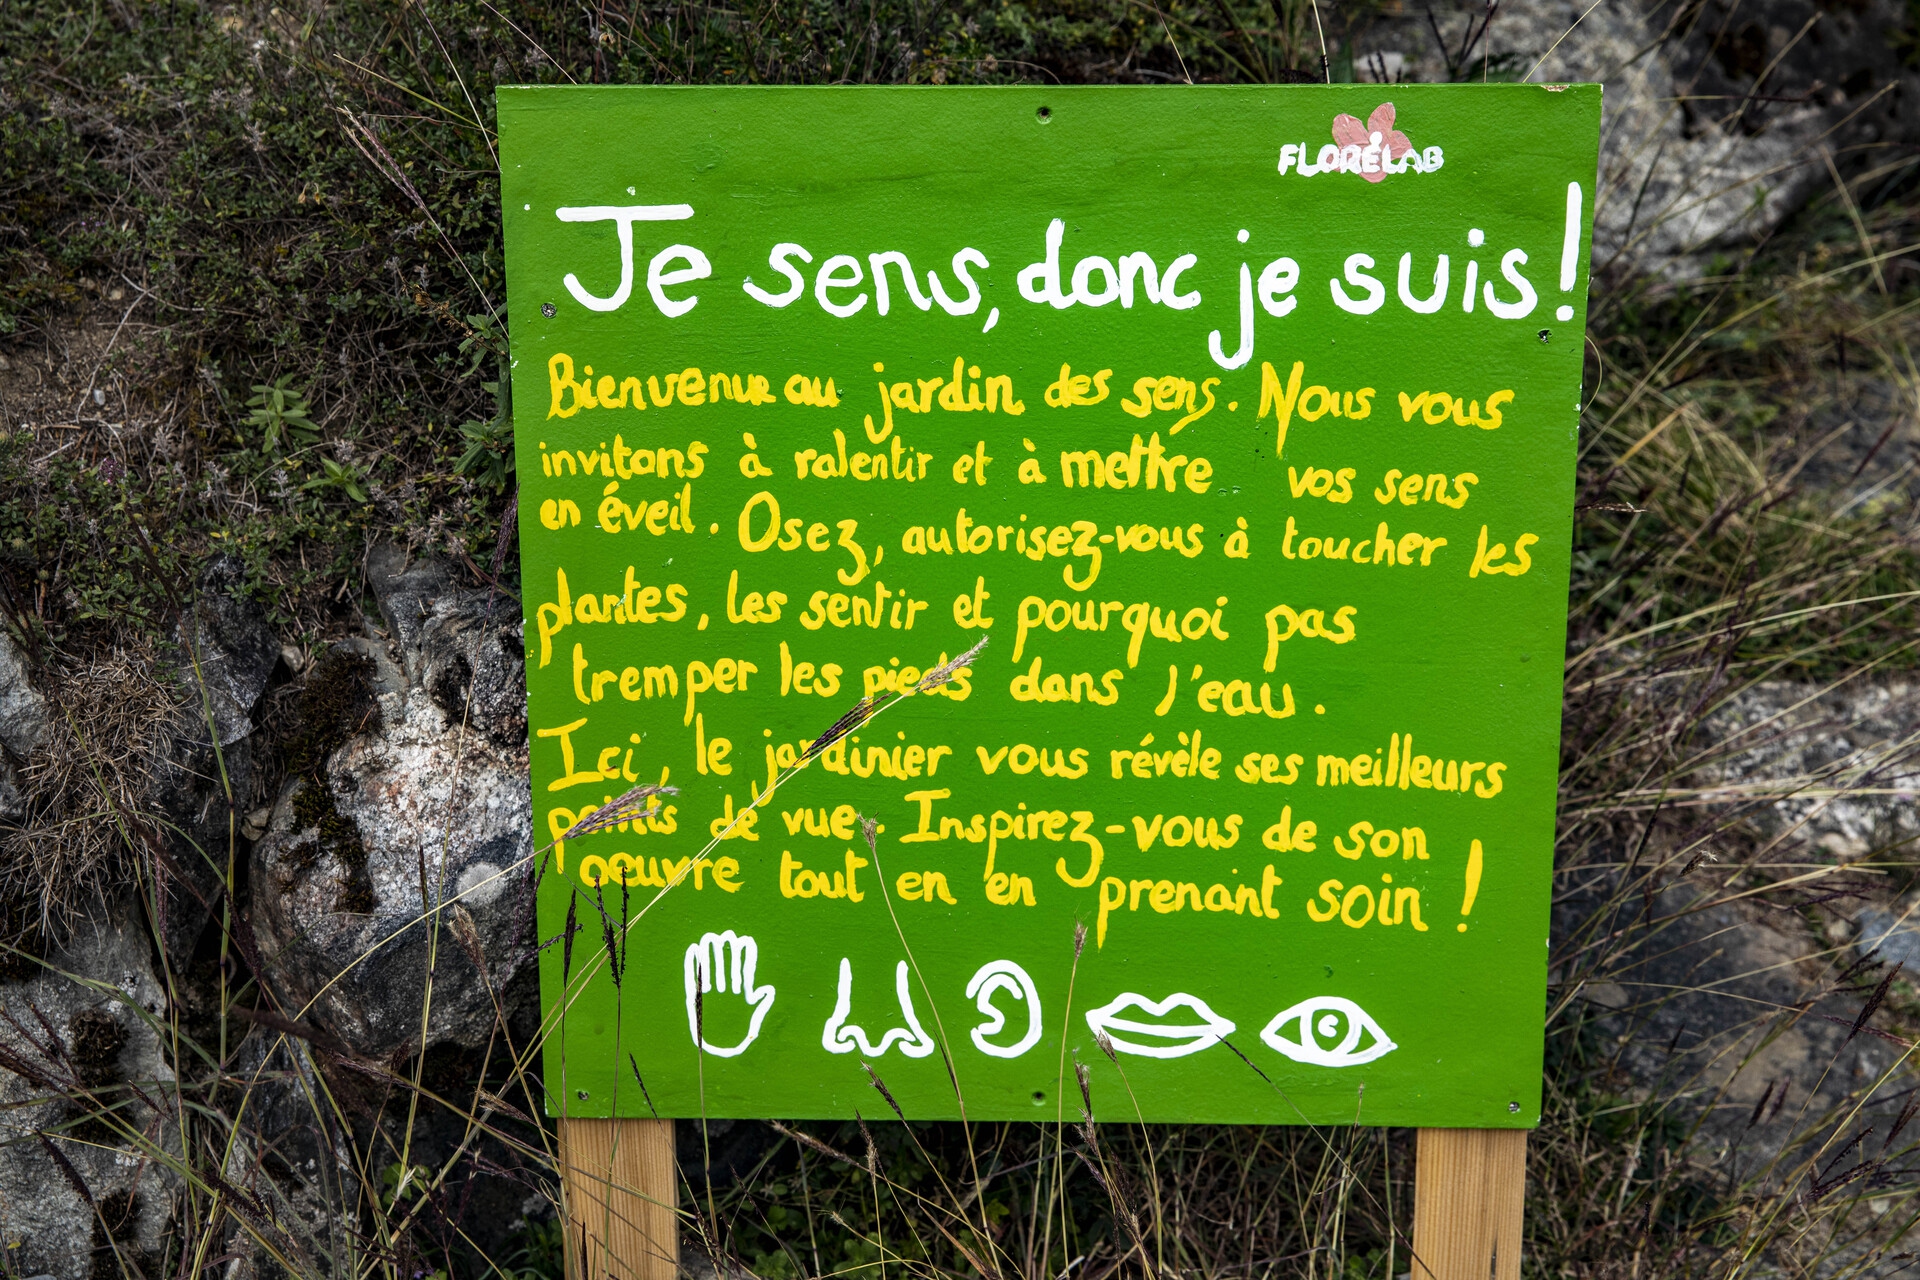 FLORÉLAB
Je sens, donc je suis!
Bienvenue au jardin des sens. Nous vous
invitons à ralentir et à mettre vos sens
en éveil. Osez, autorisez-vous à toucher les
plantes, les sentir et pourquoi pas
tremper les pieds dans l'eau.
Ici, le jardinier vous révèle ses meilleurs
points de vue. Inspirez-vous de son
oeuvre tout en en prenant soin !